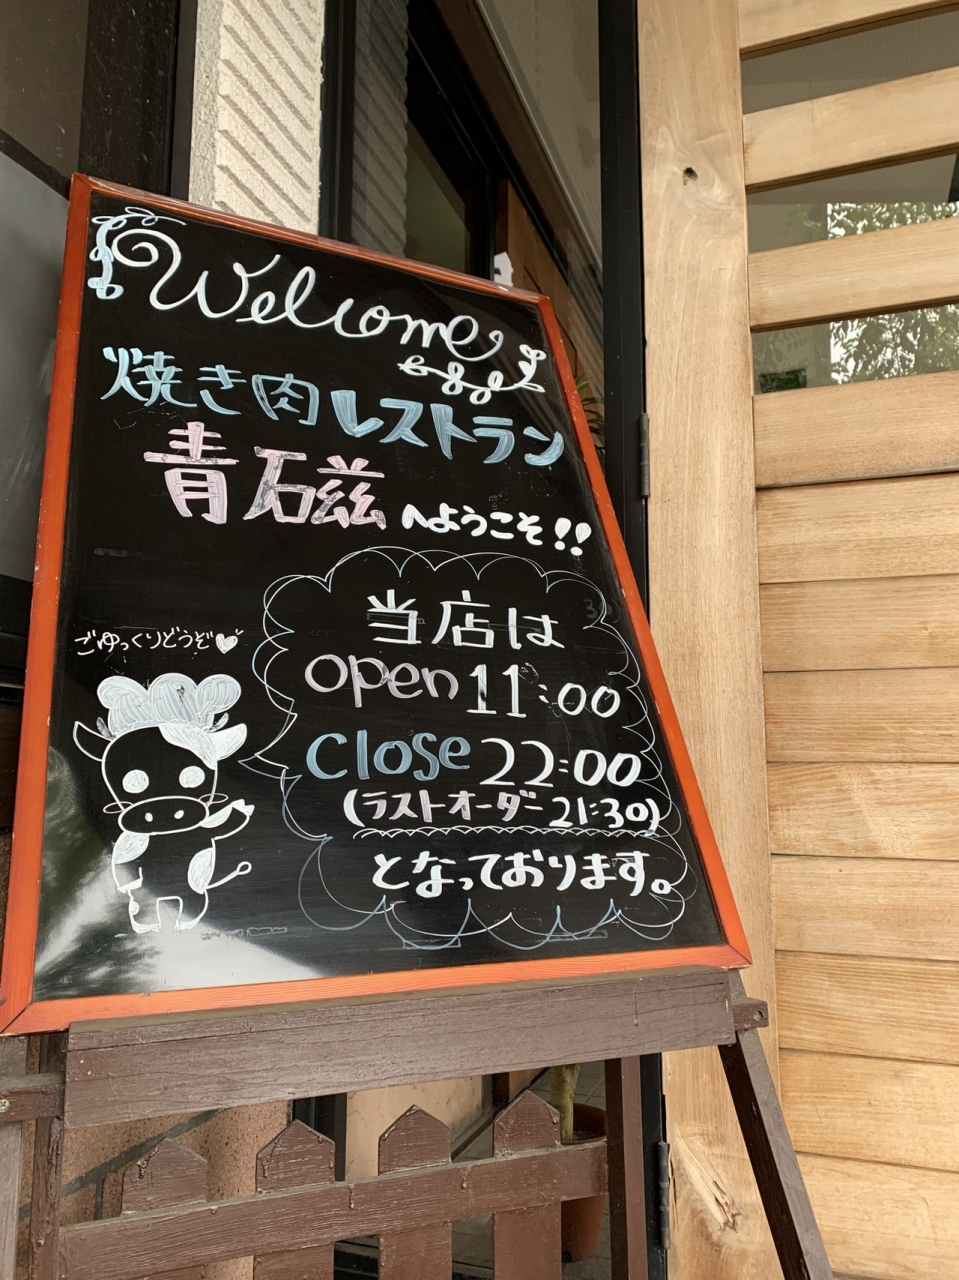 Welcome
焼き肉レストラン
青石磁へようこそ!!
ごゆっくりどうぞ♡
当店は
open 11:00
close 22:00
(ラストオーダー 21:30)
となっております。